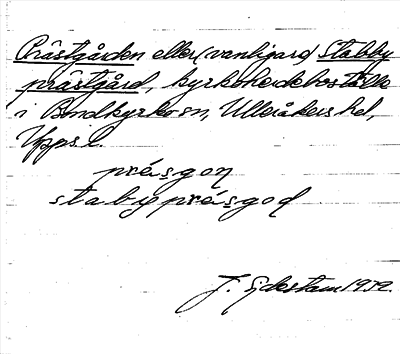 Prästgården eller (vanligare) Stabby
prästgård, kyrkoherdeboställe
i Bondkyrko sn, Ulleråkers hd,
Upps. l.
prés̲gon
stabyprés̲god
J. Sjdestam 1972.